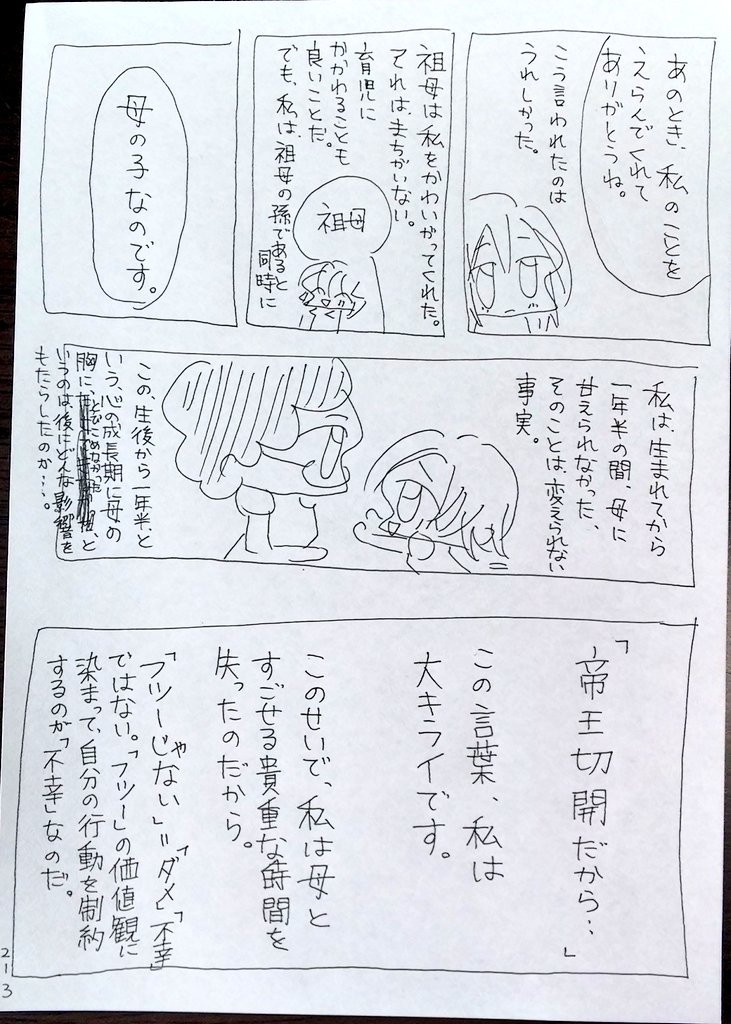 あのとき、私のことを
えらんでくれて
ありがとうね。
こう言われたのは
うれしかった。
祖母は私をかわいがってくれた。
それは、まちがいない。
育児に
かかわることも
良いことだ。
でも、私は、祖母の孫であると
同時に
祖母
母の子なのです。
私は、生まれてから
一年半の間、母に
甘えられなかった、
そのことは、変えられない
事実。
この、生後から一年半、と
いう、心の成長期に母の
胸にとびこめなかった、と
いうのは後にどんな影響を
もたらしたのか…。
「帝王切開だから…」
この言葉、私は
大キライです。
このせいで、私は母と
すごせる貴重な時間を
失ったのだから。
「フツーじゃない」=「ダメ」「不幸」
ではない。「フツー」の価値観に
染まって、自分の行動を制約
するのが「不幸」なのだ。
213